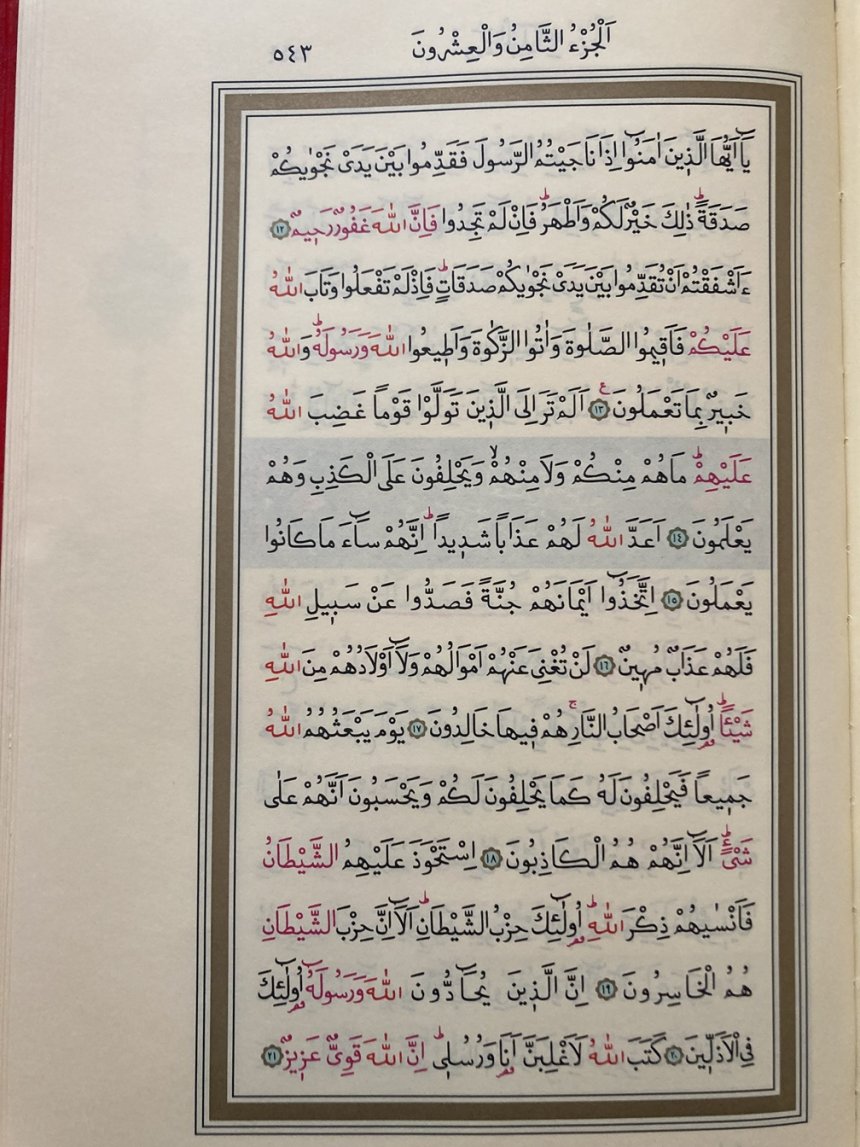 اَلْجُزْءُ الثَّامِنُ وَالْعِشْرُونَ
٥٤٣
يَٓا اَيُّهَا الَّذ۪ينَ اٰمَنُٓوا اِذَا نَاجَيْتُمُ الرَّسُولَ فَقَدِّمُوا بَيْنَ يَدَىْ نَجْوٰيكُمْ
صَدَقَةًۜ ذٰلِكَ خَيْرٌ لَكُمْ وَاَطْهَرُۜ فَاِنْ لَمْ تَجِدُوا فَاِنَّ اللّٰهَ غَفُورٌ رَح۪يمٌ ﴿١٢﴾
ءَاَشْفَقْتُمْ اَنْ تُقَدِّمُوا بَيْنَ يَدَىْ نَجْوٰيكُمْ صَدَقَاتٍۜ فَاِذْ لَمْ تَفْعَلُوا وَتَابَ اللّٰهُ
عَلَيْكُمْ فَاَق۪يمُوا الصَّلٰوةَ وَاٰتُوا الزَّكٰوةَ وَاَط۪يعُوا اللّٰهَ وَرَسُولَهُۜ وَاللّٰهُ
خَب۪يرٌ بِمَا تَعْمَلُونَ ﴿١٣﴾ ع اَلَمْ تَرَ اِلَى الَّذ۪ينَ تَوَلَّوْا قَوْماً غَضِبَ اللّٰهُ
عَلَيْهِمْۜ مَا هُمْ مِنْكُمْ وَلَا مِنْهُمْۙ وَيَحْلِفُونَ عَلَى الْكَذِبِ وَهُمْ
يَعْلَمُونَ ﴿١٤﴾ اَعَدَّ اللّٰهُ لَهُمْ عَذَاباً شَد۪يداًۜ اِنَّهُمْ سَٓاءَ مَا كَانُوا
يَعْمَلُونَ ﴿١٥﴾ اِتَّخَذُٓوا اَيْمَانَهُمْ جُنَّةً فَصَدُّوا عَنْ سَب۪يلِ اللّٰهِ
فَلَهُمْ عَذَابٌ مُه۪ينٌ ﴿١٦﴾ لَنْ تُغْنِىَ عَنْهُمْ اَمْوَالُهُمْ وَلَٓا اَوْلَادُهُمْ مِنَ اللّٰهِ
شَيْـٔاًۜ اُو۬لٰٓئِكَ اَصْحَابُ النَّارِۚ هُمْ ف۪يهَا خَالِدُونَ ﴿١٧﴾ يَوْمَ يَبْعَثُهُمُ اللّٰهُ
جَم۪يعاً فَيَحْلِفُونَ لَهُ كَمَا يَحْلِفُونَ لَكُمْ وَيَحْسَبُونَ اَنَّهُمْ عَلٰى
شَىْءٍۜ اَلَٓا اِنَّهُمْ هُمُ الْكَاذِبُونَ ﴿١٨﴾ اِسْتَحْوَذَ عَلَيْهِمُ الشَّيْطَانُ
فَاَنْسٰيهُمْ ذِكْرَ اللّٰهِۜ اُو۬لٰٓئِكَ حِزْبُ الشَّيْطَانِۜ اَلَٓا اِنَّ حِزْبَ الشَّيْطَانِ
هُمُ الْخَاسِرُونَ ﴿١٩﴾ اِنَّ الَّذ۪ينَ يُحَٓادُّونَ اللّٰهَ وَرَسُولَهُٓ اُو۬لٰٓئِكَ
فِى الْاَذَلّ۪ينَ ﴿٢٠﴾ كَتَبَ اللّٰهُ لَاَغْلِبَنَّ اَنَا۬ وَرُسُل۪ىۜ اِنَّ اللّٰهَ قَوِىٌّ عَز۪يزٌ ﴿٢١﴾